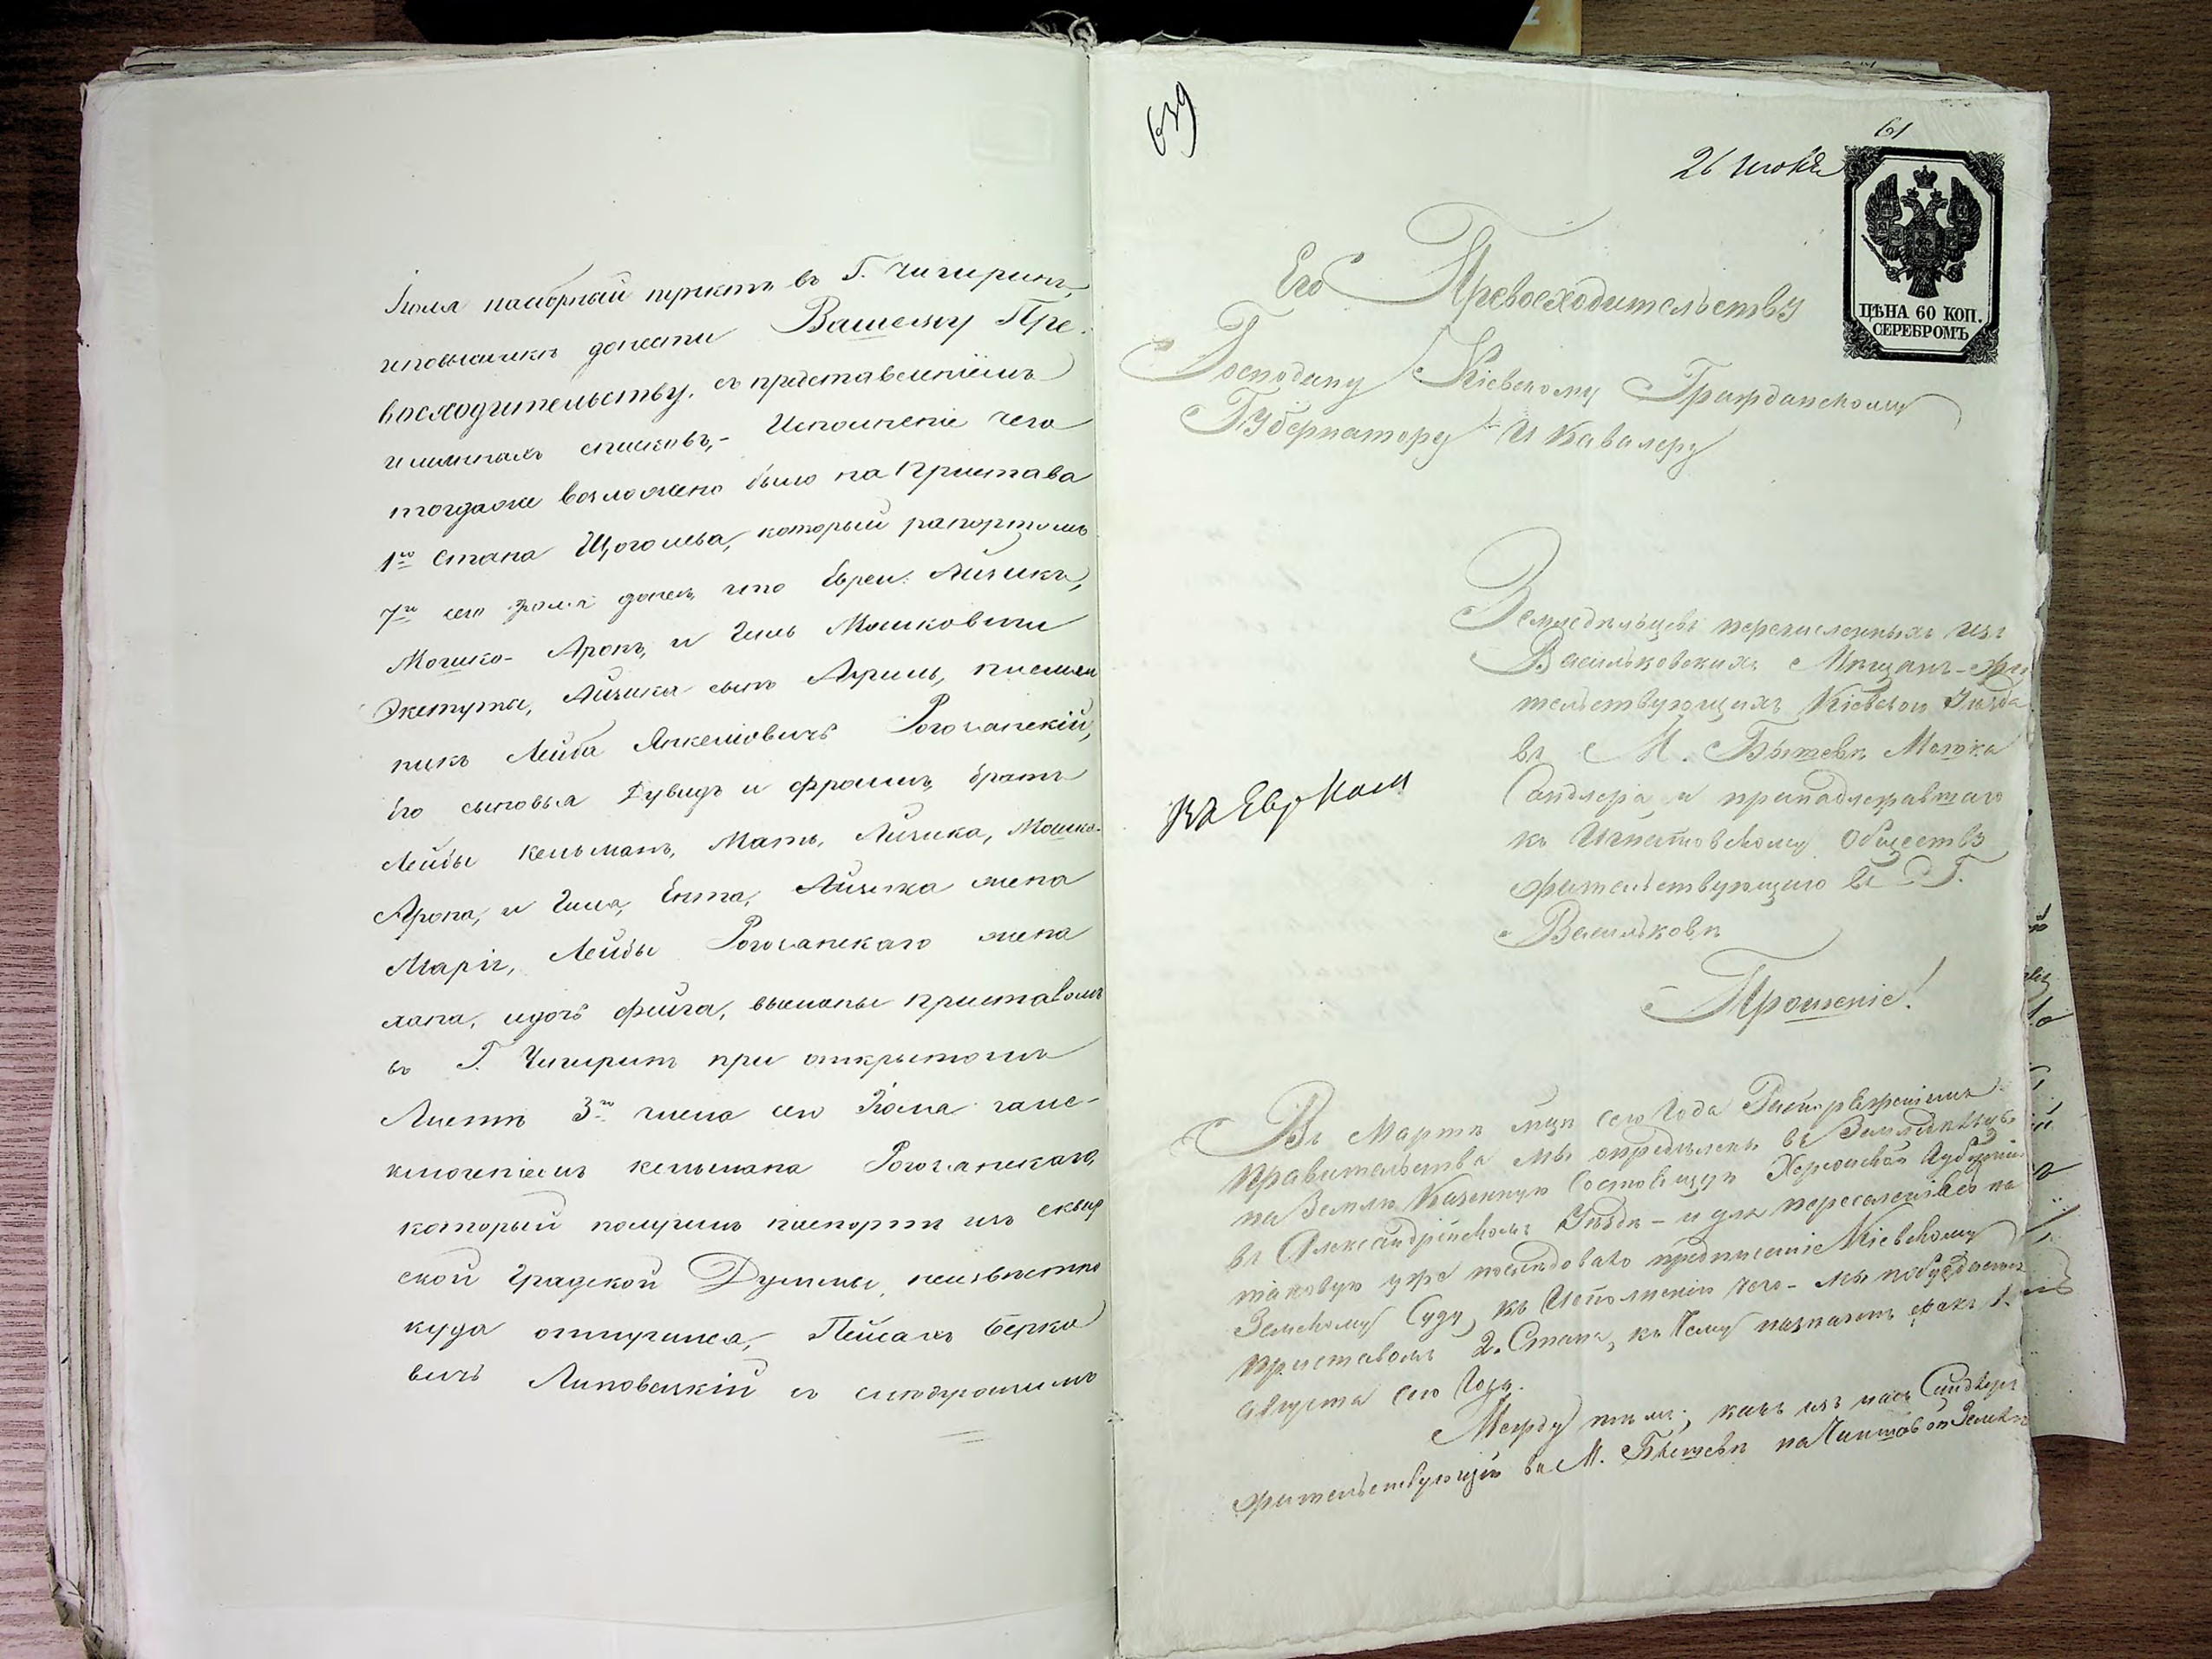 Іюля наборный пунктъ въ Г. Чигиринъ,
и повелѣлъ донести Вашему Пре-
восходительству, съ представленіемъ
имянныхъ списковъ,- Исполненіе чего
тогдаже возложено было на Пристава
1го Стана Щоголева, который рапортомъ
7го сего Іюля донесъ что Евреи: Айзикъ,
Мошко- Аронъ, и Гиль Мошковичи
Айзика сынъ племян
никъ Лейба Янкелевичъ Рогочанскій,
Его сыновья Дувидъ и Фроимъ, братъ
Лейбы Кельманъ, Мать, Айзика, Мошка-
Арона, и Гиля, Ента, Айзика жена
Марія, Лейбы Рогочанскаго жена
Хана, и дочь Фейга, высланы приставомъ
въ Г. Чигиринъ при открытомъ
Листѣ 3го числа сего Іюля за ис-
ключеніемъ Кельмана Рогочанскаго,
который получилъ паспортъ изъ Сквир
ской Градской Думы, неизвѣстно
куда отлучился, Пейсахъ Берко
вичъ Липовецкій съ
639
61
26 Июня
ЦѢНА 60 КОП.
СЕРЕБРОМЪ
Его Превосходительству
Господину Кіевскому Гражданскому
Губернатору И Кавалеру
Земледѣльцевъ перечисленныхъ изъ
Васильковскихъ Мѣщанъ- жи
тельствующихъ Кіевскаго Уѣзда
въ М. Бышевѣ Мошка
Сандлера и принадлежавшаго
къ Игнатовскому Обществу
жительствующаго въ Г.
Васильковѣ
Прошеніе!
Въ Мартѣ мцѣ сего Года
Правительства мы опредѣлены въ
на Землю Казенную Состоящую Херсонской Губерніи
въ Александрійскомъ Уѣздѣ - и для переселенія на
таковую уже послѣдовало предписаніе Кіевскому
Земскому Суду, къ Исполненію чего- мы побуждаемы
Приставомъ 2. Стана, къ чему назначенъ 1.
Августа сего Года.
Между тѣмъ; какъ изъ насъ Сандлеръ
жительствующій въ М. Бышевѣ на